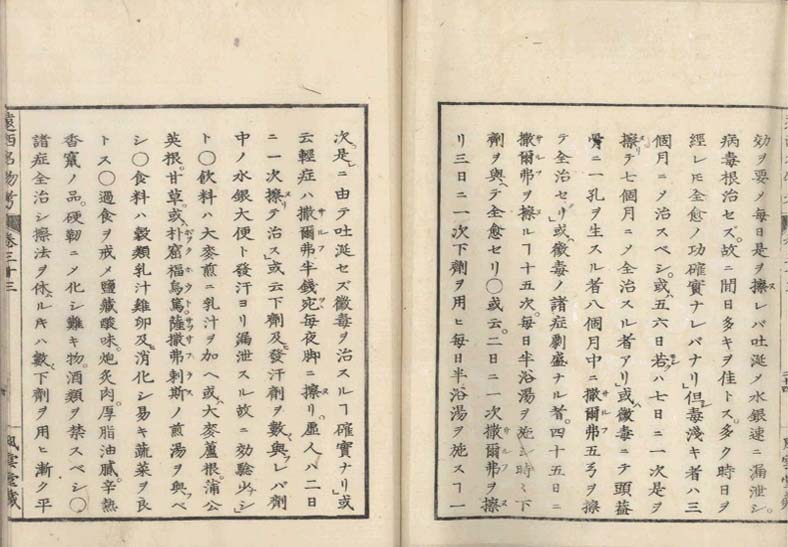 効ヲ要メ毎日是ヲ擦レバ吐涎メ水銀速ニ漏泄シ
病毒根治セズ。故ニ間日多キヲ佳トス。多ク時日ヲ
經レモ全愈ノ功確實ナレバナリ」但毒淺キ者ハ三
個月ニメ治スベシ。或五六日若ハ七日ニ一次是ヲ
擦テ七個月ニメ全治スル者アリ」或黴毒ニテ頭蓋
骨ニ一孔ヲ生スル者八個月中ニ撒爾弗五ヲ擦
テ全治セリ」或黴毒ノ諸症劇盛ナル者。四十五日ニ
撒爾弗ヲ擦ルヿ十五次。毎日半浴湯ヲ施シ時々下
劑ヲ與テ全愈セリ〇或云。二日ニ一次撒爾弗ヲ擦
リ三日ニ一次下劑ヲ用ヒ毎日半浴湯ヲ施スヿ一
次是ニ由テ吐涎セズ黴毒ヲ治スルヿ確實ナリ」或
云輕症ハ撒爾弗半錢宛毎夜脚ニ擦リ。虛人ハ二日
ニ一次擦テ治ス」或云下劑及發汗劑ヲ數與フレバ劑
中ノ水銀大便ト發汗ヨリ漏泄スル故ニ効驗少シ」
ト〇飲料ハ大麥煎ニ乳汁ヲ加ヘ或大麥蘆根。蒲公
英根。甘草。或朴窟福烏篤。薩撒弗剌斯ノ煎湯ヲ與ベ
シ〇食料ハ穀類乳汁雞卵及消化シ易キ蔬菜ヲ良
トス〇過食ヲ戒メ鹽藏酸味。炮炙肉。厚脂油膩。辛熱
香竄ノ品。硬韌ニメ化シ難キ物。酒類ヲ禁スベシ〇
諸症全治シ擦法ヲ休ルキハ數下劑ヲ用ヒ漸ク平
遠西名物考
卷三十三
風雲堂藏